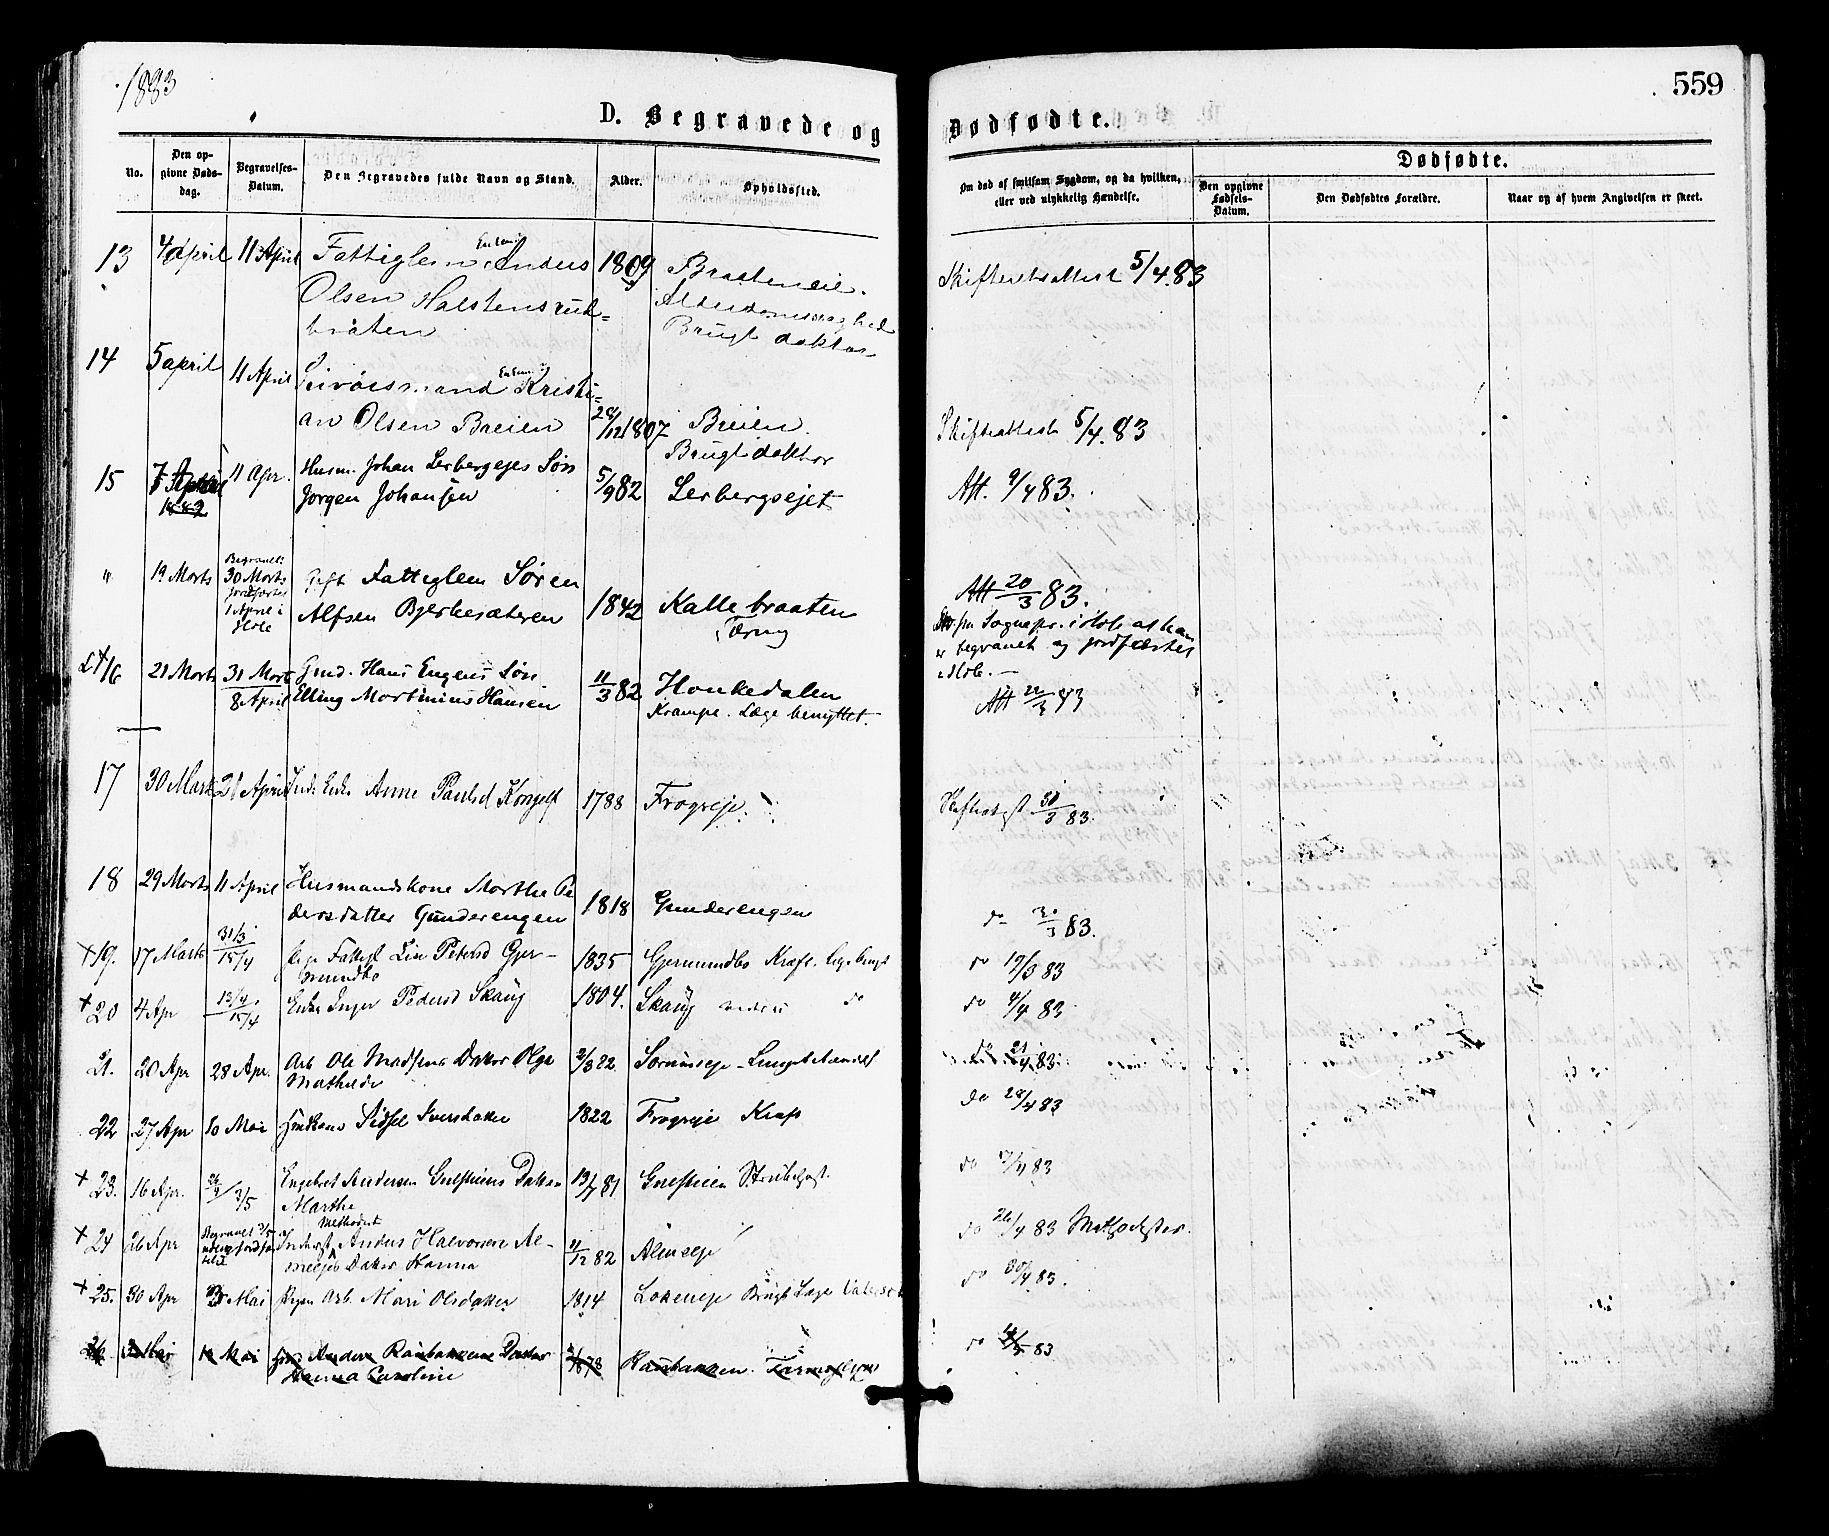 1883
559
D. Begravede og Dødfødte.
No.
Den op-
givne Døds-
dag.
Begravelses-
Datum.
Den Begravedes fulde Navn og Stand.
Alder.
Opholdssted.
Om død af smitsom Sygdom, og da hvilken,
eller ved ulykkelig Hændelse.
Dødfødte.
Den opgivne
Fødsels-
Datum.
Den Dødfødtes Forældre.
Naar og af hvem Angivelsen er skeet.
13 4 April 11 April Fattiglem Enkem Anders 1809
Olsen Halstensrud-
bråten
Alderdomssvaghed
Brugt doktor
Skifteretsattest 5/4.83
14 5 april 11 April Enkem Kristi-
an Olsen Breien 28/12 1807 Breien
Brugt doktor
Skifteattest 5/4.83
15 7 April 11 Apr. Husm. Johan Lerbergejes Søn
Jørgen Johansen 5/9 82 Lerbergsejet
Att. 9/4 83.
" 19 Marts Begravet
30 Marts
jordfæstet
1 April i
Hole
Gift Fattiglem Søren
Alfsen Bjerkesæteren 1842 Kallebraaten
Tæring
Att 20/3 83.
fra Sognepr. i Hole at han
er begravet og jordfæstet
i Hole.
16 21 Marts 31 Mart
8 April
Gmd. Hans Engens Søn
Elling Mortinius Hansen 11/3 82 Honkedalen
Krampe. Læge benyttet.
Att
17 30 Marts 21 April Inds. Enke Anne Paulsd Kongelf 1788 Frogneje
83.
18 29 Marts 11 April Husmandskone Marthe Pe
dersdatter Gunderengen 1818 Gunderengen
do 30/3 83.
+ 19. 17 Marts 31/3
15/4
Fattigl Lise Petersd Gjer-
mundbo 1835 Gjermundbo Kræft.
do 19/3 83
+ 20 4 Apr 15/4 Enke Inger Pedersd Skaug 1804. Skaug do
do 4/4 83
21. 20 Apr 28 Apr. Arb Ole Madsens Datter Olga
Mathilde Sørumseje
do 21/4 83.
22 27 Apr 10 Mai Sidsel Iversdatter 1822 Frogneje Kræft
do 28/4 83
+ 23. 16 Apr. 3/5 Engebret Andersen Datter
Marthe 81
do 17/4 83
+ 24 26 Apr Begravet
Methodist
Inderst Anders Halvorsen Al-
mesejes Datter Hanna 11/12 82 Almeeje
do 26/4 83 Methodister.
+ 25. 30 Apr Mai Arb. Mari Olsdatter 1814 Brugt Læge
do 30/4 83.
26 Mai 10 Mai Anders Raubakkens Datter
Hanna Caroline 1878 Raubakken.
do 83